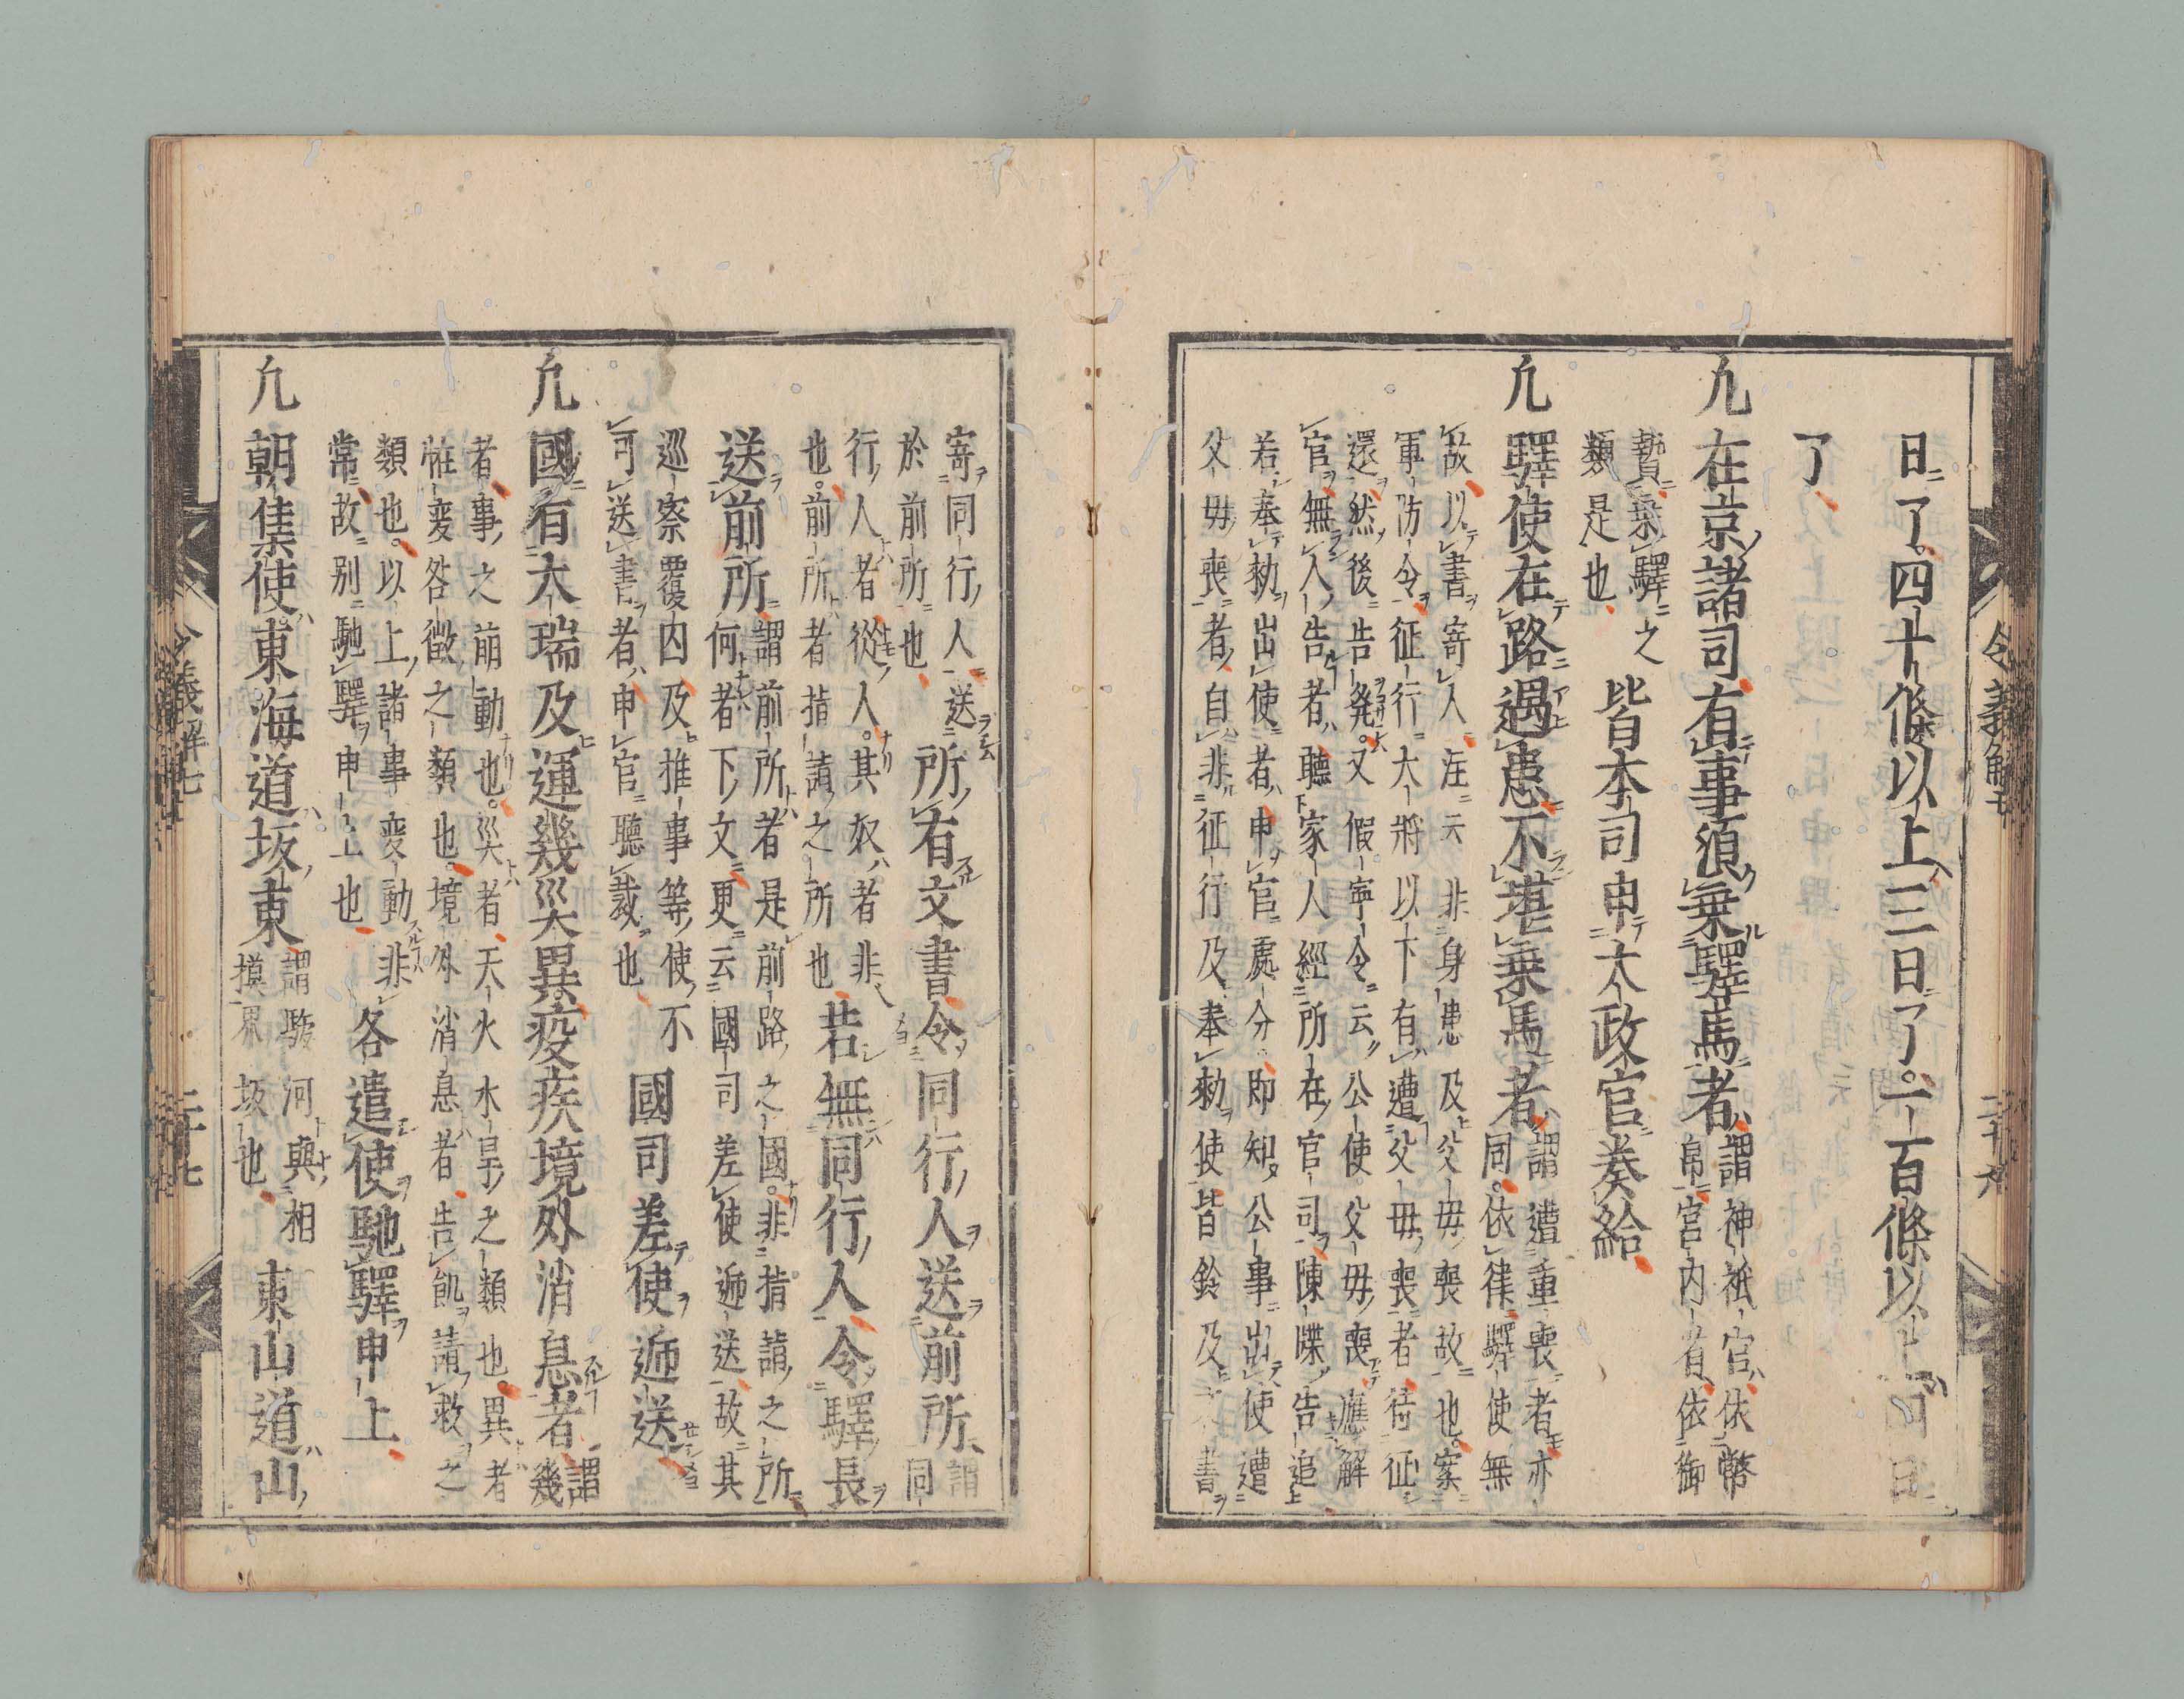 日了四十條以上三日了一百條以上四日
了
凢在京諸司有事須乗驛馬者謂神祇官依幣
帛宮内省依御
贄乗驛之
類是也皆本司申太政官奏給
凢驛使在路遇患不堪乗馬者謂遭重喪者亦
同依律驛使無
故以書寄人注云非身患及父母喪故也案
軍防令征行大將以下有遭父母喪者待征
還然後告發又假寧令云公使父母喪應解
官無人告者聽家人經所在官司陳牒告追
若奉勅出使者申官處分即知公事出使遭
父母喪者自非征行及奉勅使皆鈴及書
寄同行人送所有文書令同行人送前所謂
同
於前所也
行人者從人其奴者非
也前所者指請之所也若無同行人令驛長
送前所謂前所者是前路之國非指請之所
何者下文更云國司差使逓送故其
巡察覆囚及推事等使不
可送書者申官聽裁也國司差使逓送
凢國有大瑞及運幾災異疫疾境外消息者謂
幾
者事之萠動也災者天火水旱之類也異者
恠変咎徴之類也境外消息者告飢請救之
類也以上諸事変動非
常故別馳驛申上也各遣使馳驛申上
凢朝集使東海道坂東謂駿河與相
摸界坂也東山道山
令義解七
二十六
令義解七
二十七